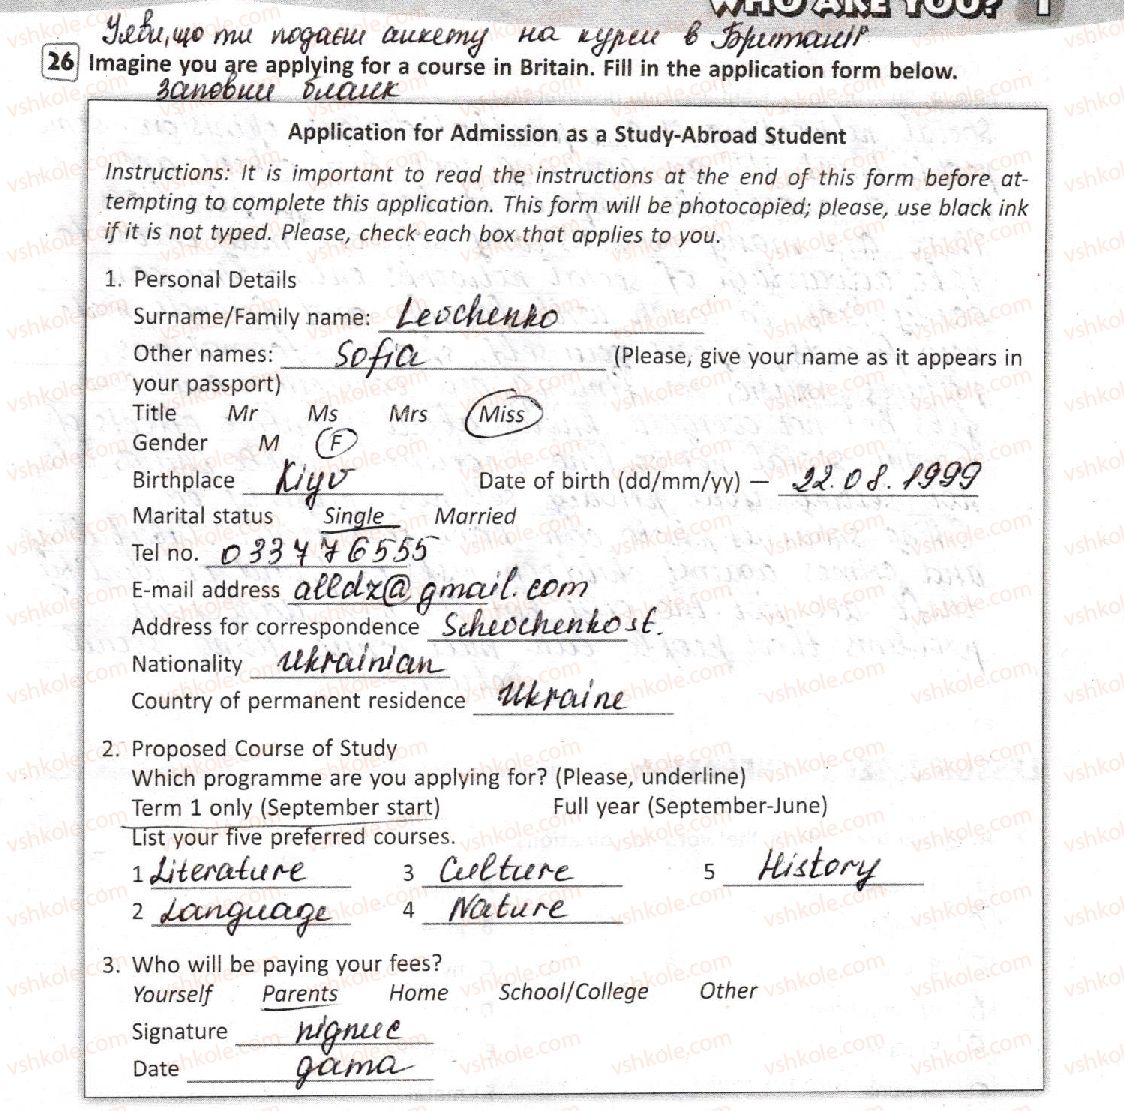 WHO ARE YOU? 1
Уяви, що ти подаєш анкету на курси в Британії
26 Imagine you are applying for a course in Britain. Fill in the application form below.
Заповни бланк
Application for Admission as a Study-Abroad Student
Instructions: It is important to read the instructions at the end of this form before at-
tempting to complete this application. This form will be photocopied; please, use black ink
if it is not typed. Please, check each box that applies to you.
1. Personal Details
Surname/Family name: Levchenko
Other names: Sofia (Please, give your name as it appears in
your passport)
Title Mr Ms Mrs Miss
Gender M F
Birthplace Kiyv Date of birth (dd/mm/yy) — 22.08.1999
Marital status Single Married
Tel no. 0337476555
E-mail address alldz@gmail.com
Address for correspondence Schevchenko st.
Nationality Ukrainian
Country of permanent residence Ukraine
2. Proposed Course of Study
Which programme are you applying for? (Please, underline)
Term 1 only (September start) Full year (September-June)
List your five preferred courses.
1 Literature 3 Culture 5 History
2 Language 4 Nature
3. Who will be paying your fees?
Yourself Parents Home School/College Other
Signature підпис
Date дата